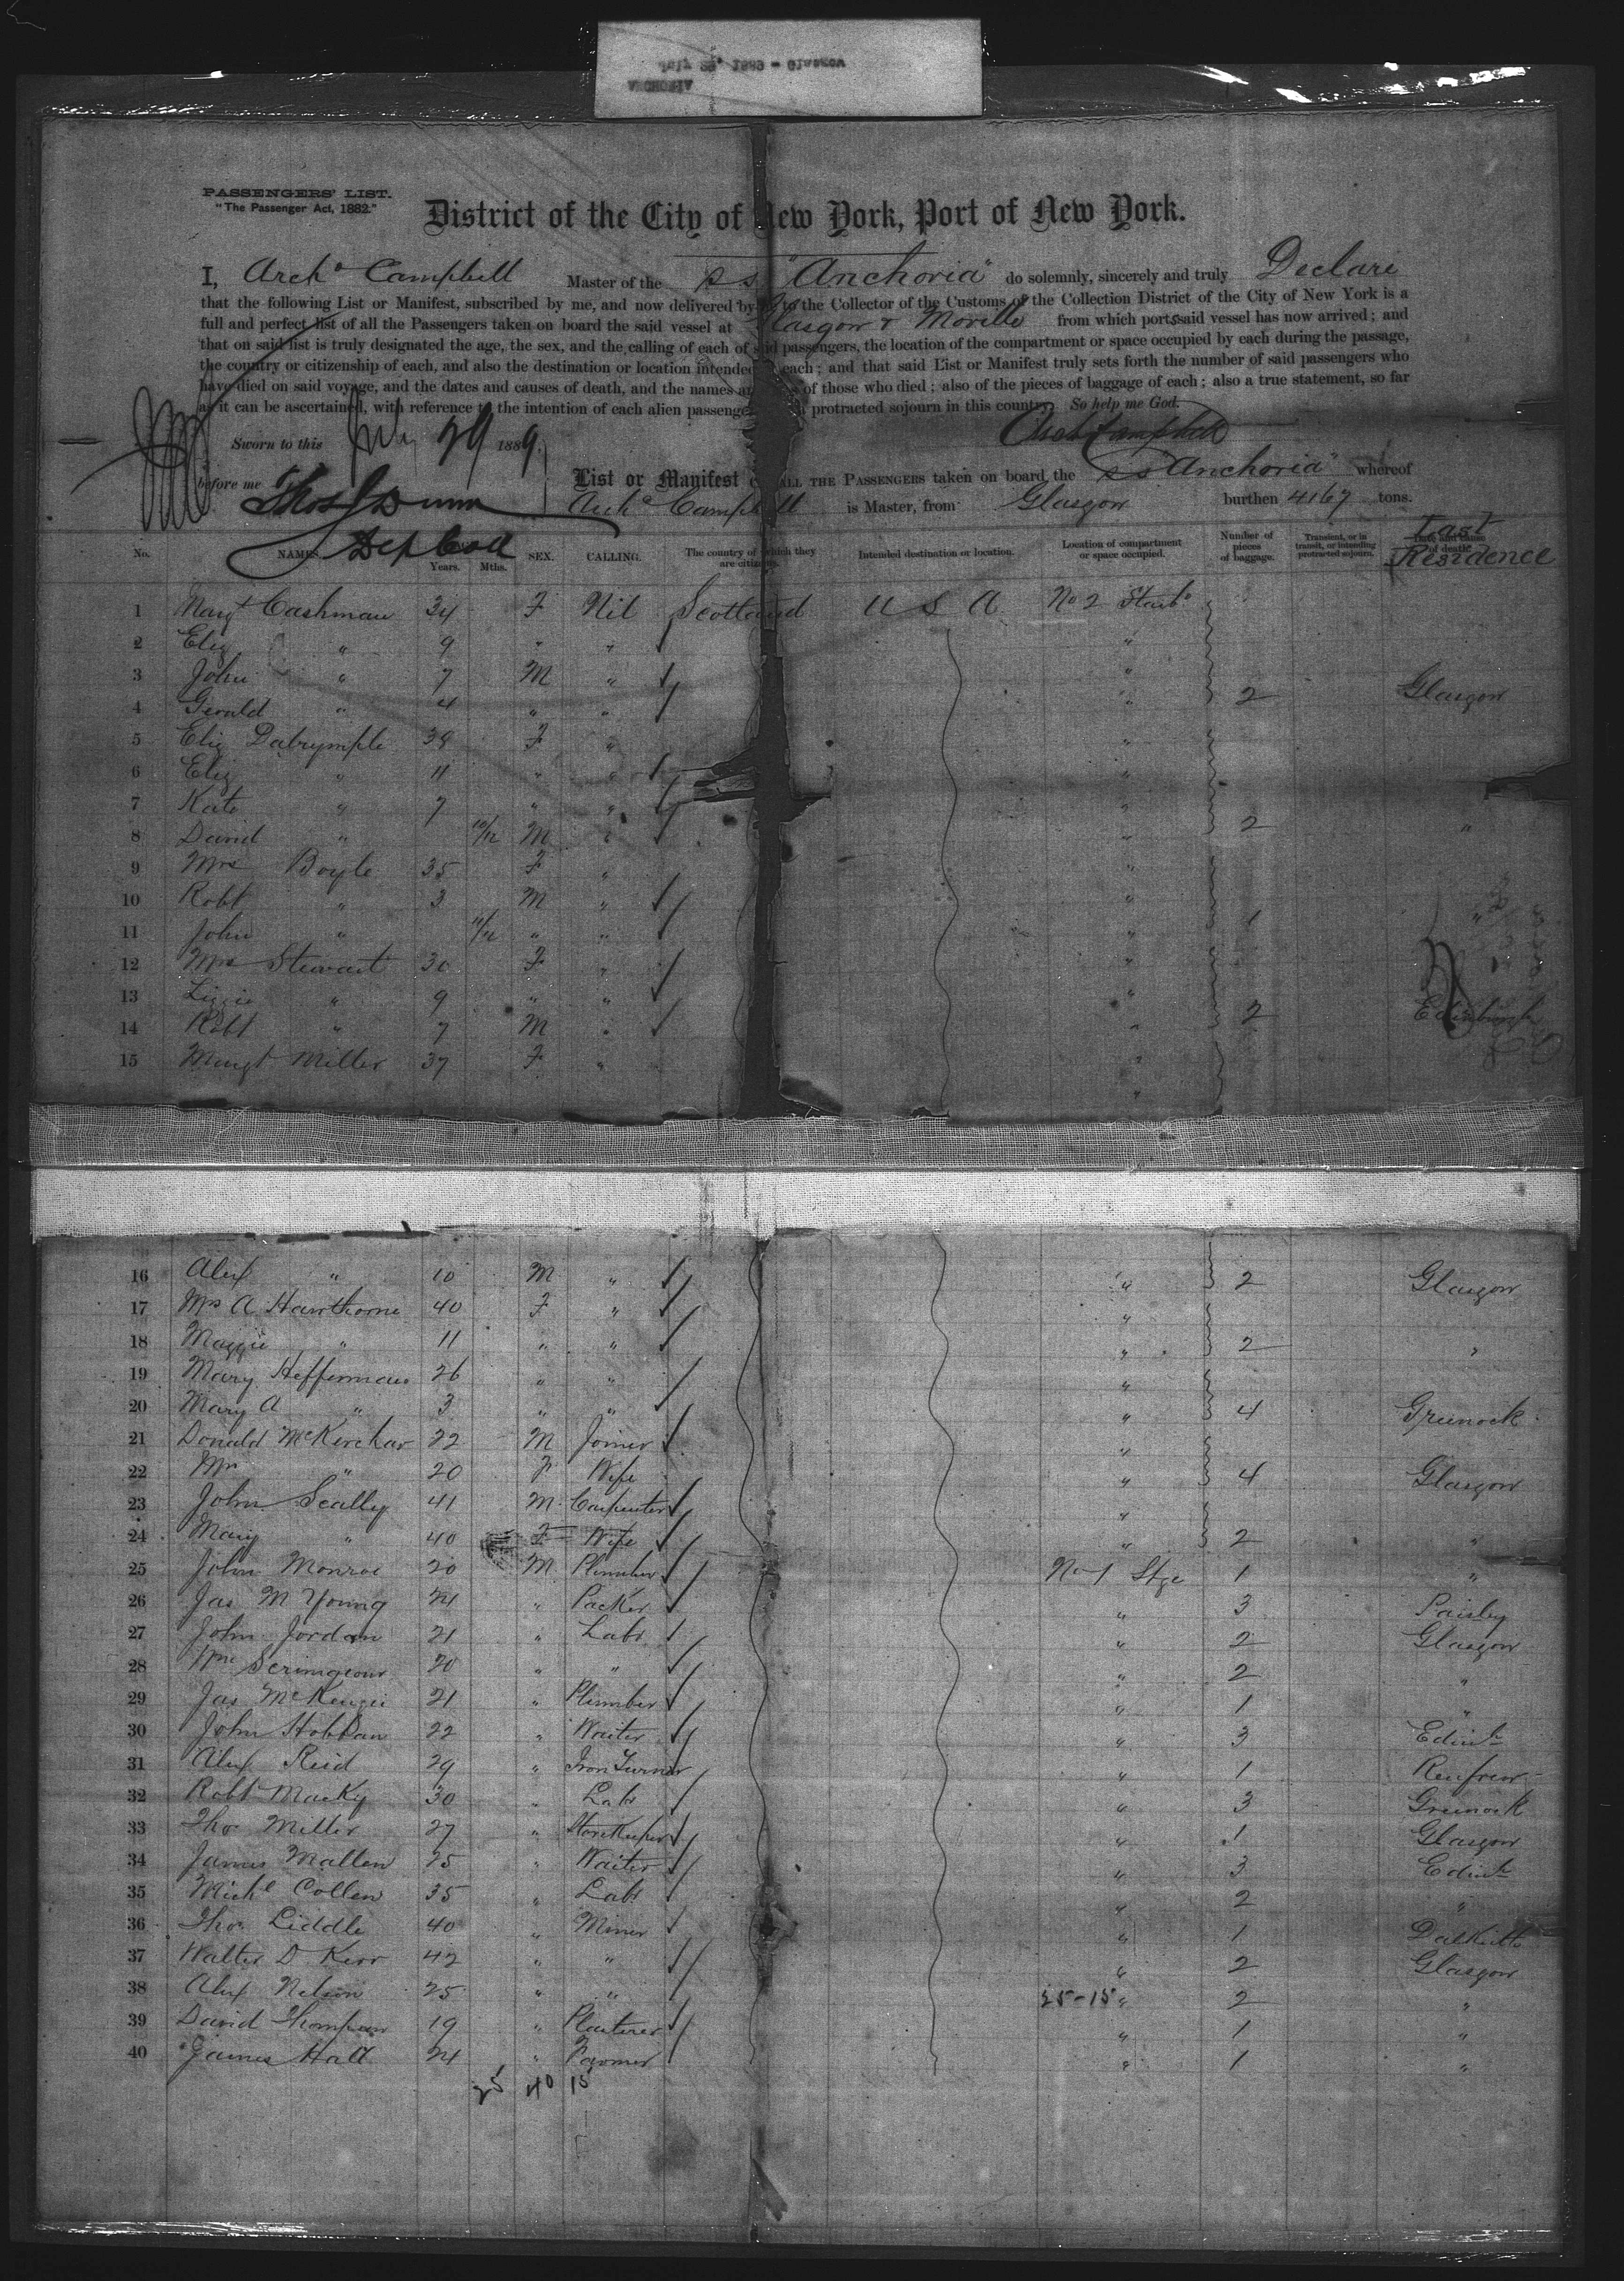 July 29, 1889 - Glasgow
ANCHORIA
PASSENGERS' LIST.
"The Passenger Act, 1882."
District of the City of New York, Port of New York.
I, Archd Campbell Master of the ss "Anchoria" do solemnly, sincerely and truly Declare
that the following List or Manifest, subscribed by me, and now delivered by me to the Collector of the Customs of the Collection District of the City of New York is a
full and perfect list of all the Passengers taken on board the said vessel at Glasgow & Moville from which ports said vessel has now arrived; and
that on said list is truly designated the age, the sex, and the calling of each of said passengers, the location of the compartment or space occupied by each during the passage,
the country or citizenship of each, and also the destination or location intended by each; and that said List or Manifest truly sets forth the number of said passengers who
have died on said voyage, and the dates and causes of death, and the names and of those who died; also of the pieces of baggage of each; also a true statement, so far
as it can be ascertained, with reference to the intention of each alien passenger protracted sojourn in this country. So help me God.
Arch Campbell
Sworn to this July 29 1889
before me Thos Dunn
Dep Coll
List or Manifest OF ALL THE PASSENGERS taken on board the ss "Anchoria" whereof
Archd Campbell is Master, from Glasgow burthen 4167 tons.
No. NAMES. Years. Mths. SEX. CALLING. The country of which they are citizens. Intended destination or location. Location of compartment or space occupied. Number of pieces of baggage. Transient, or in transit, or intending protracted sojourn. Last Residence
1 Margt Cashman 34 F Nil Scotland U S A No 2 Starbd
2 Eliz " 9 " " "
3 John " 7 M " "
4 Gerald " 4 " " " 2 Glasgow
5 Eliz Dalrymple 39 F " "
6 Eliz " 11 " " "
7 Kate " 7 " " "
8 David " 10/12 M " " 2 "
9 Mrs Boyle 35 F " "
10 Robt " 3 M " "
11 John " 11/12 " " " 1 "
12 Mrs Stewart 30 F " "
13 Lizzie " 9 " " "
14 Robt " 7 M " " 2 Edinburgh
15 Margt Miller 37 F " "
16 Alex " 10 M " " 2 Glasgow
17 Mrs A Hawthorne 40 F " "
18 Maggie " 11 " " " 2 "
19 Mary Heffernan 26 " " "
20 Mary A " 3 " " " 4 Greenock
21 Donald McKerchar 22 M Joiner "
22 Mrs " 20 F Wife " 4 Glasgow
23 John Scally 41 M Carpenter "
24 Mary " 40 F Wife " 2 "
25 John Monroe 20 M Plumber No 1 Stge 1 "
26 Jas M Young 21 " Packer " 3 Paisley
27 John Jordan 21 " Labr " 2 Glasgow
28 Wm Scrimgeour 20 " " " 2 "
29 Jas McKenzie 21 " Plumber " 1 "
30 John Hobban 22 " Waiter " 3 Edinh
31 Alex Reid 29 " Iron Turner " 1 Renfrew
32 Robt Macky 30 " Labr " 3 Greenock
33 Thos Miller 27 " Storekeeper " 1 Glasgow
34 James Mallen 25 " Waiter " 3 Edinh
35 Michl Collen 35 " Labr " 2 "
36 Thos Liddle 40 " Miner " 1 Dalkeith
37 Walter D Kerr 42 " " " 2 Glasgow
38 Alex Nelson 25 " " 25-15 " 2 "
39 David Thompson 19 " Plasterer " 1 "
40 James Hall 24 " Farmer " 1 "
25 40 15